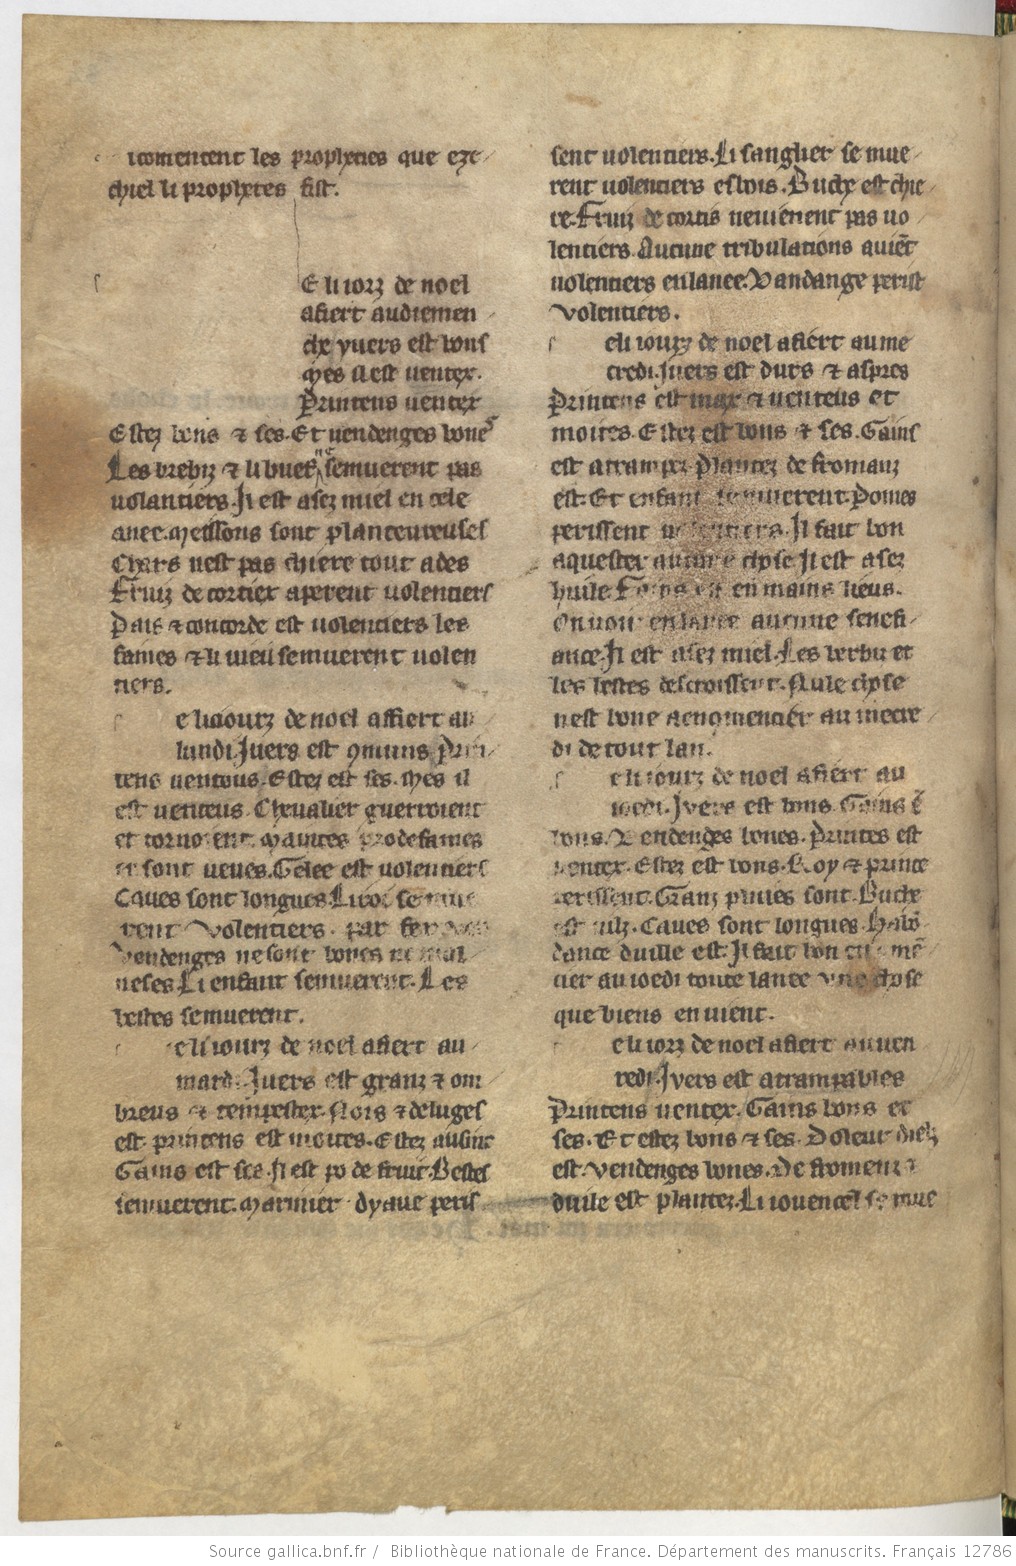 icomencent les propheties que eze
chiel li prophetes fist.
E li iorz de noel
afiert audiemen
che yuers est bons
Mes il est ventex.
Printens ventex
Estez bons ⁊ ses. Et vendenges bones
Les brebiz ⁊ li buef ne semuerent pas
uolantiers. Il est asez miel en cele
anee. Meissons sont planteureuses
Chars nest pas chiere tout ades
Fruiz de cortiex aperent uolentiers
Pais ⁊ concorde est uolentiers les
fames ⁊ li uieil semuerent uolen
tiers.
e li iourz de noel affiert au
lundi. Juers est qmuns Prin
tens uentous. Estez est ses. Mes il
est uenteus. Cheualier guerroient
et tornoient. Maintes prodefames
sont ueues. Gelee est uolentiers
Eaues sont longues. Li roi se mue
rent Volentiers. par
Vendenges ne sont bones ne mal
ueses Li enfant semuerent. Les
bestes semuerent.
e li iourz de noel afiert au
mardi. Juers est granz ⁊ om
breus ⁊ tempestex. Nois ⁊ deluges
est printens est moites. Estez ausint
Gains est ses. Il est po de fruit. Bestes
semuerent. Marinier dyaue peris
sent uolentiers. Li sanglier se mue
rent uolentiers es bois. Buche est chie
re. Fruiz de cortis neuienent pas uo
lentiers. Aucune tribulations auiēt
uolentiers en lanee. Vandange perist
Volentiers.
e li iourz de noel afiert au me
credi. Juers est durs ⁊ aspres
Printens est max ⁊ uenteus et
moites. Estez est bons ⁊ ses. Gains
est atrampez. Plantez de fromanz
est. Et enfant semuerent. Pomes
perissent uolentiers. Il fait bon
aquester aucune chose Il est asez
huile Fains est en mains lieus.
On uoit en lanee aucune senefi
ance. Il est asez miel. Les berbiz et
les bestes descroissent. Nule chose
nest bone acnqmencier au mecre
di de tout lan.
e li iourz de noel afiert au
ioedi. Jvers est bons. Gains ē
bons. Vendenges bones. Printens est
uentex. Estez est bons. Roy ⁊ prince
perissent. Granz pluies sont. Buche
est Eaues sont longues. Habō
dance duile est. Il fait bon
cier au ioedi toute lanee une chose
que biens en uient.
e li iorz de noel afiert au uen
redi. Jvers est atrampables
Printens uentex. Gains bons et
ses. Et estez bons ⁊ ses. Doleur
est. Vendenges bones. De froment ⁊
duile est plantez. Li iouencel se mue
Source gallica.bnf.fr / Bibliothèque nationale de France. Département des manuscrits. Français 12786